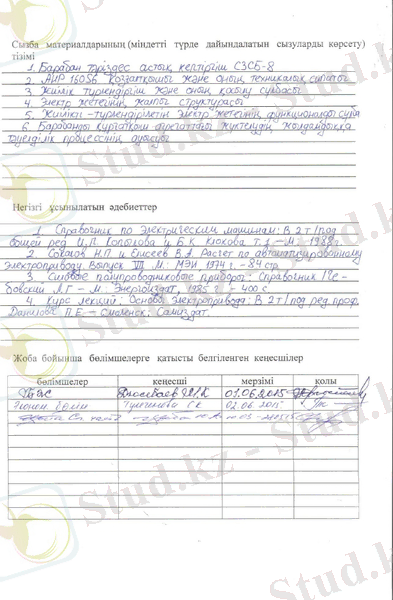 Сызба материалдарының (міндетті түрде дайындалатын сызуларды көрсету)
тізімі
1. Барабан тәріздес астық кептіргіш СЗСБ-8
2. АИР 160S6 Қозғалтқышы және оның техникалық сипаты
3. Жиілік түрлендіргіш және оның қосылу сұлбасы
4. Электр жетегінің жалпы структурасы
5. Жиілікті-түрлендіргіштің электр жетегінің функционалды сұлба
6. Барабанды құрғатқыш агрегаттағы жүктелудің жылдамдыққа
тәуелділік процессінің
Негізгі ұсынылатын әдебиеттер
1. Справочник по электрическим машинам: В 2 т / под
общей ред. И.П. Копылова и Б.К. Клокова т.1 – М.: 1988г.
2. Соколов Н.П и Елисеев В.А. Расчет по автоматизированному
электроприводу. Выпуск VII М.: МЭИ, 1974 г. – 84 стр
3. Силовые полупроводниковые приборы: Справочник / Че-
бовский А.Г – М.: Энергоиздат, 1985 г. – 400 с
4. Курс лекций: Основы электропривода: В 2 т / под ред. проф.
Данилова П.Е. – Смоленск: Самиздат.
Жоба бойынша бөлімшелерге қатысты белгіленген кеңесшілер
бөлімшелер кеңесші мерзімі қолы
01.06.2015
02.06.2015
Stud.kz - Stud.kz
Stud.kz - Stud.kz
Stud.kz - Stud.kz